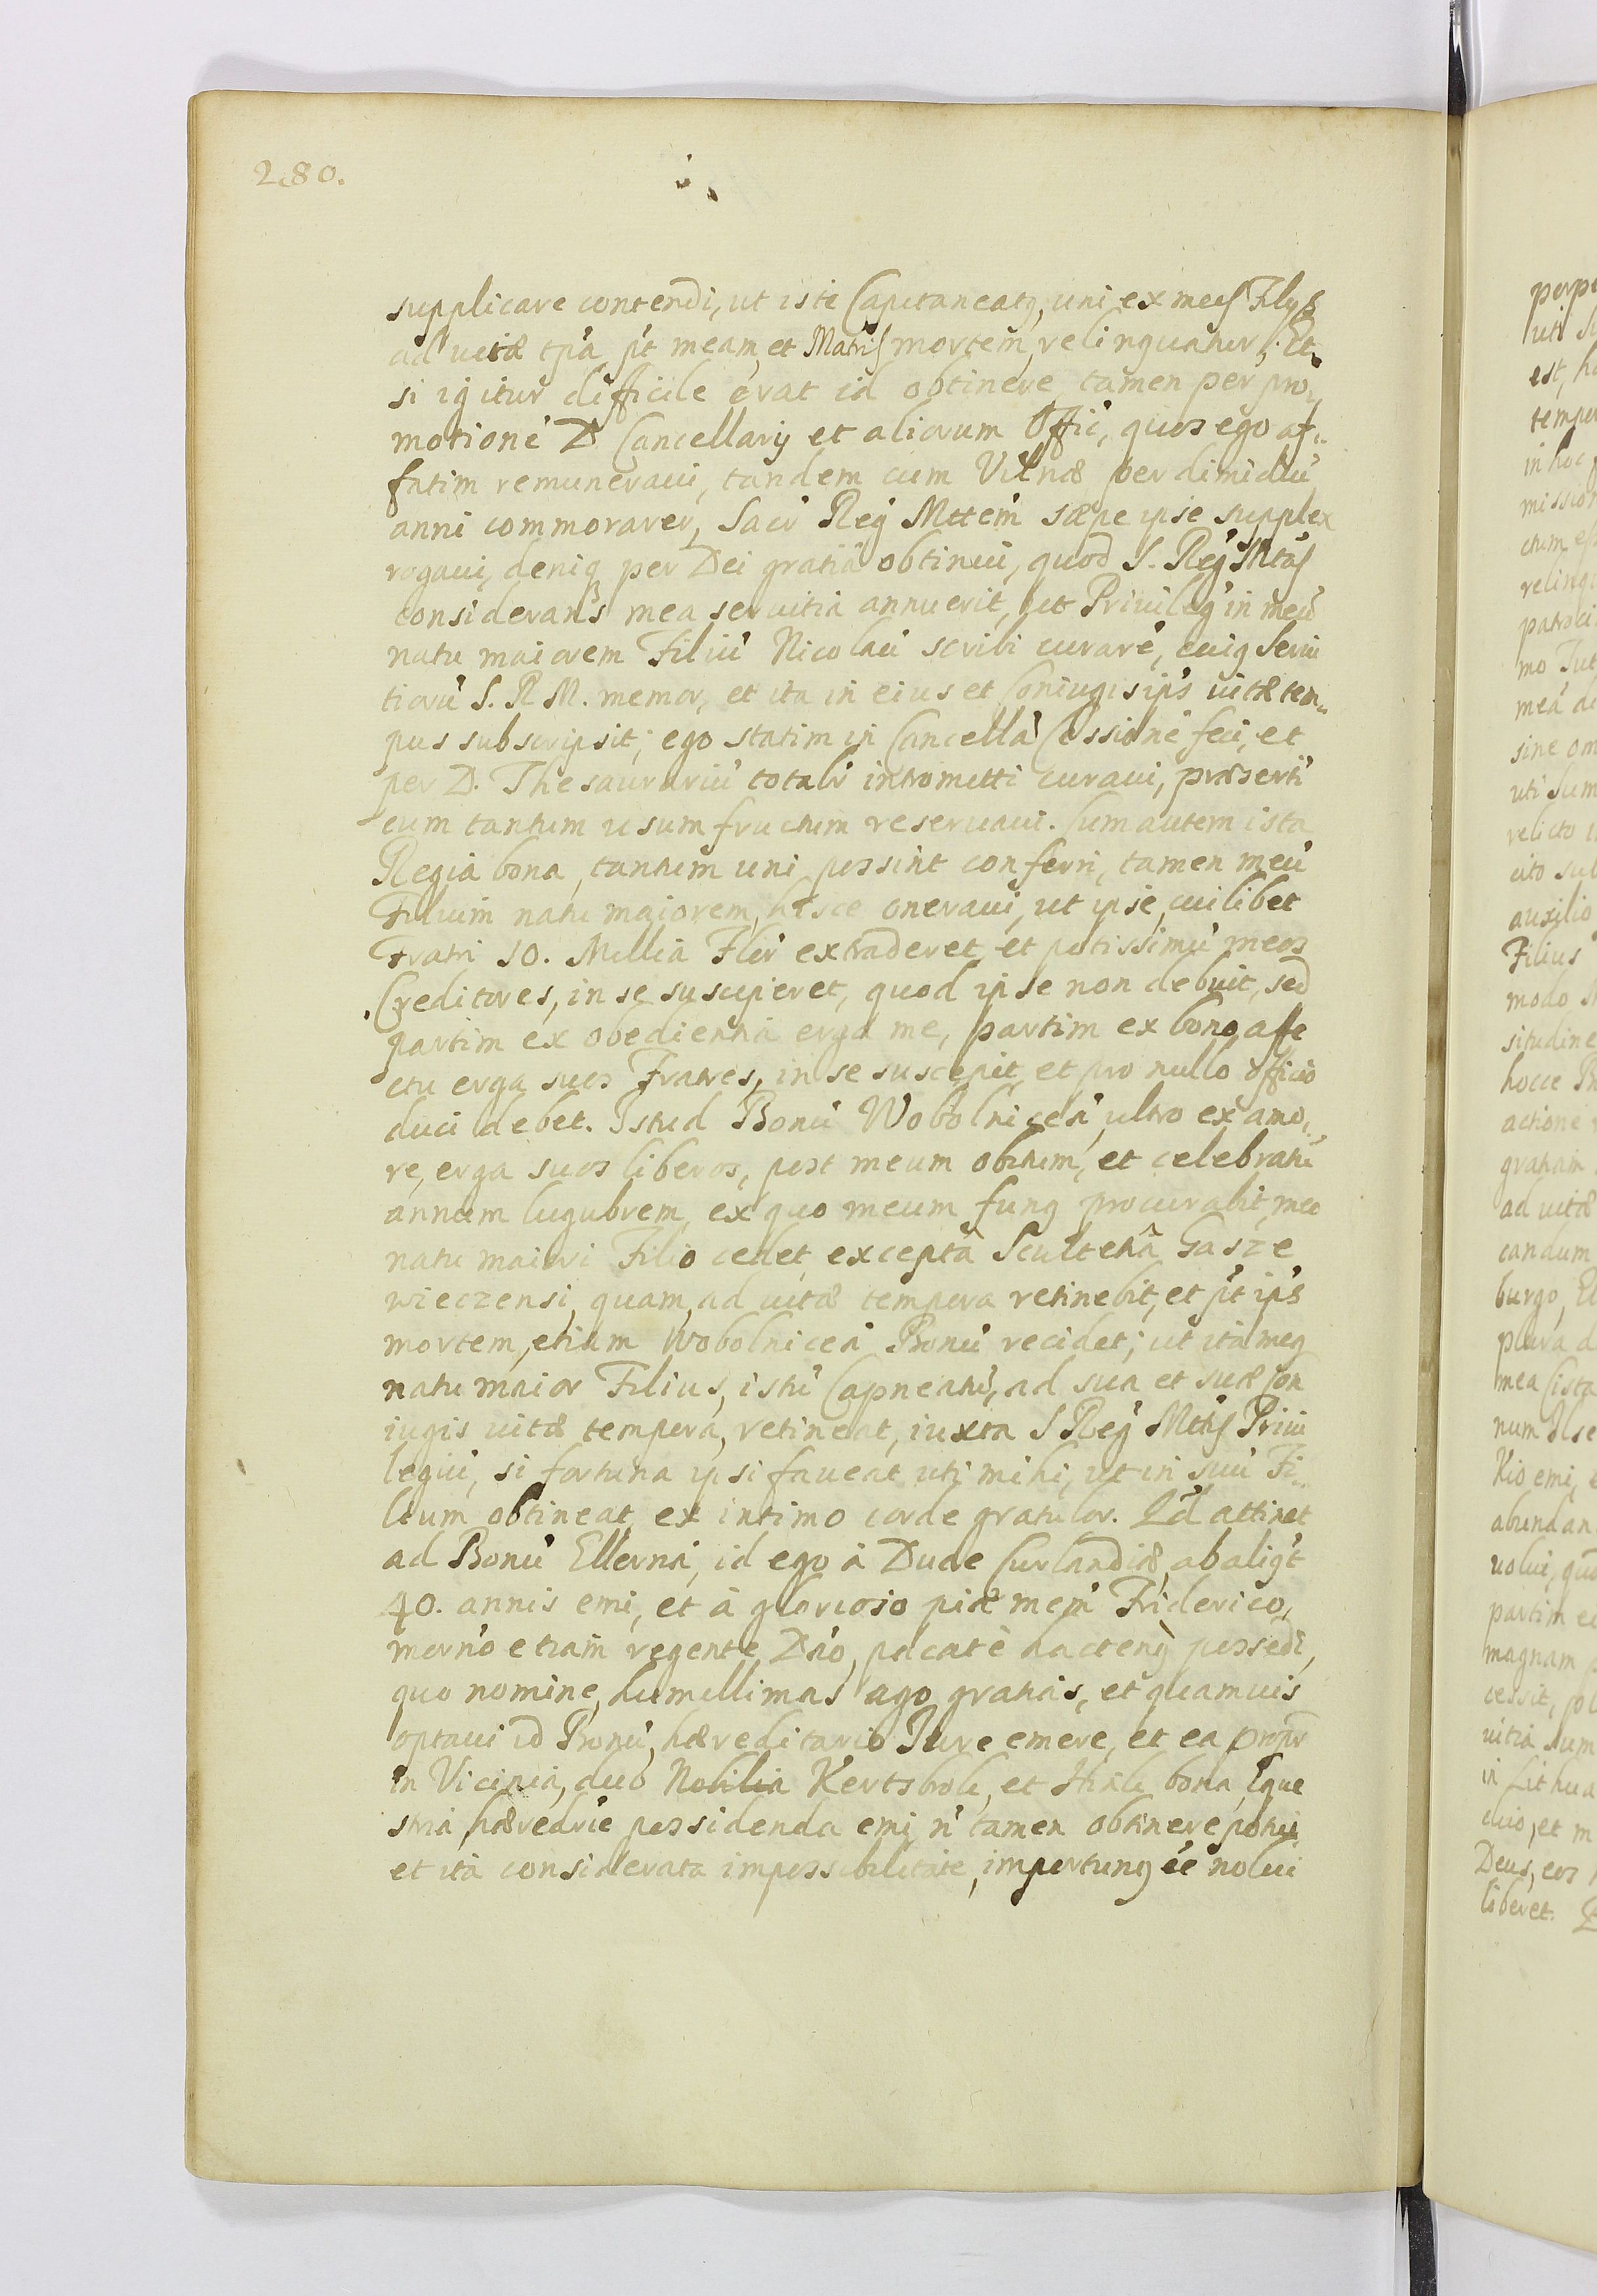 280.
supplicare contendi, ut iste Capitaneatq, uni ex meis Filijs
ad uitæ tp̄a p̄t meam, et Matris mortem relinquatur, Et,
si igitur difficile erat id obtinere tamen per pro,
motionē D. Cancellarij et aliorum Offic̄, quos ego af,,
fatim remuneraui, tandem cum Vilnæ per dimidiū
anni commorarer, Sacr̄ Reg̃ Mttem̄ sæpe ipse supplex
rogaui, deniq per Dei gratiā obtinui, quod S. Reg̃ Mtas
considerans mea seruitia annuerit, ut Priuileg̃ in meū
natu maiorem Filiū Nicolaū scribi curarē, cuiq serui
tiorū S. R M. memor, et ita in eius et Coniugis ip̄s uitæ tem,,
pus subscripsit; ego statim in Cancella Cessionē feci, et
per D. Thesaurariū totalr̄ intromitti curaui, præsertī
cum tantum usum fructum reseruaui. Cum autem ista
Regia bona, tantum uni possint conferri, tamen meū
Filium natu maiorem, hisce oneraui, ut ipse, cuilibet
Fratri 10. Millia Flor̄ extraderet et potissimū meos
Creditores, in se susciperet, quod ipse non debuit, sed
partim ex obedientia erga me, partim ex bono affe
ctu erga suos Fratres, in se suscepit, et pro nullo officio
duci debet. Istud Bonū Wobolnicen̄, ultro ex amo,,
re, erga suos liberos, post meum obitum, et celebratū
annum lugubrem, ex quo meum funq procurabit, meo
natu maiori Filio cedet, exceptâ Scultetiâ Gasze
wieczensi, quam, ad uitæ tempora retinebit, et p̄t ip̄s
mortem, etiam Wobolnicen̄ Bonū recidet; ut ita meq
natu maior Filius, istū Capneatū, ad sua et suæ Con
iugis uitæ tempora, retineat, iuxta S Reg̃ Mttis Priui
legiū, si fortuna ipsi faueat uti mihi, ut in suū Fi,,
lium obtineat, ex intimo corde gratulor. Qd̄ attinet
ad Bonū Ellernā, id ego à Duce Curlandiæ, ab aliq̄t
40. annis emi, et à glorioso piæ mem̄ Friderico,
mern̄o etiam regente Dn̄o, pacatè hactenq possedi,
quo nomine, humillimas ago gratias, et quamuis
optaui id Bonū, hæreditario Jure emere, et ea propr̄
in Vicinia, duo Nobilia Kertsboli, et bona, Eque
stria, hæredrie possidenda emi, n̄ tamen obtinere potui
et ita considerata impossibilitate, importunq ēē nolui